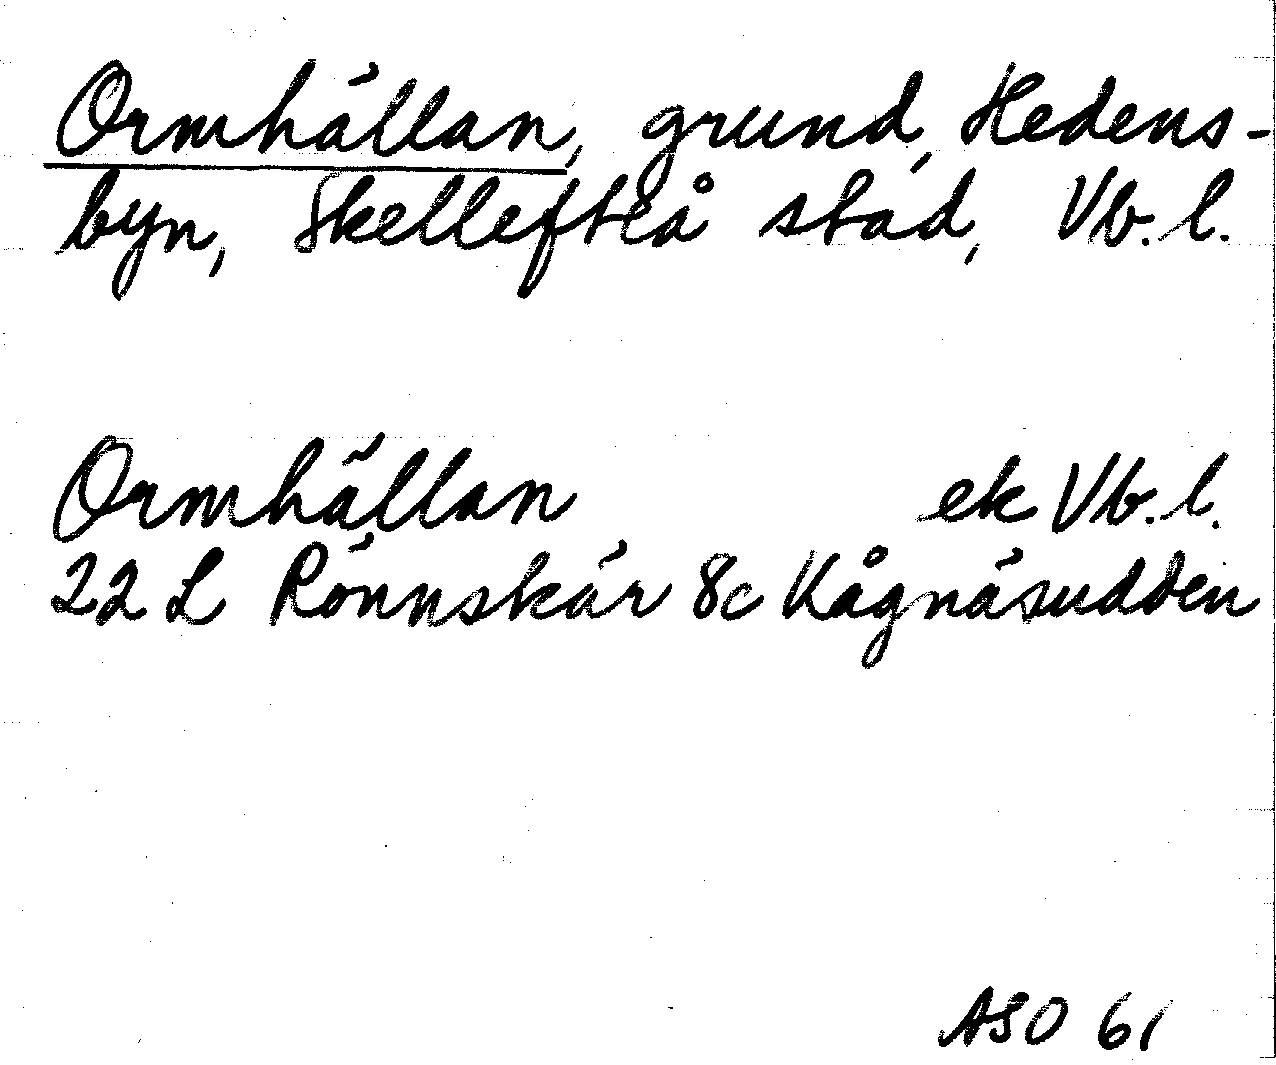 Ormhällan, grund, Hedens-
byn, Skellefteå stad, Vb. l.
Ormhällan ek Vb. l.
22 L Rönnskär 8c Kågnäsudden
ASO 61